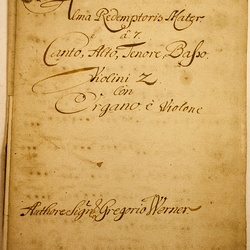 Alma Redemptoris Mater
à 7.
Canto, Alto, Tenore Basso.
Violini 2
Con
Organo è Violone
Authore Sigre Gregorio Werner